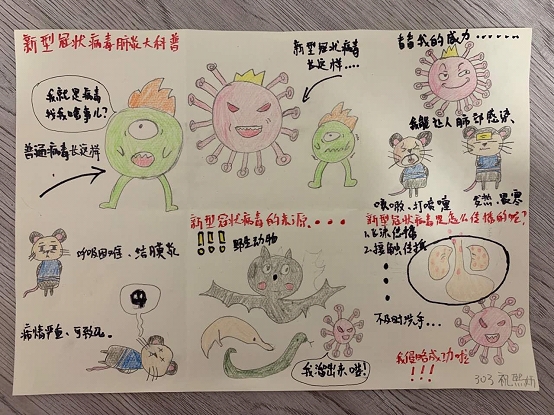 新型冠状病毒肺炎大科普
我就是病毒
找我啥事儿?
普通病毒长这样
新型冠状病毒
长这样....
看看我的威力.......
我能让人肺部感染、
咳嗽、打喷嚏
发热、畏寒
呼吸困难、结膜炎
病情严重、可致死。
新型冠状病毒的来源...
!!! 野生动物
我溜出来喽!
新型冠状病毒是怎么传播的呢?
1.飞沫传播
2.接触传播
不及时洗手...
我侵略成功啦
!!!
303